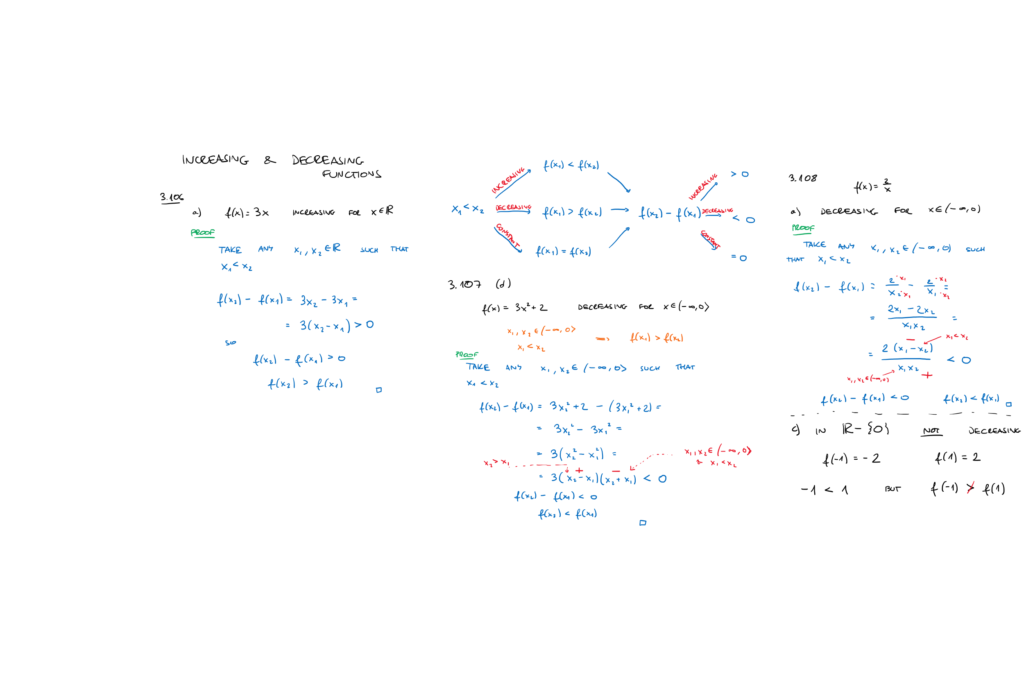 INCREASING & DECREASING
FUNCTIONS
3.106
a) f(x) = 3x INCREASING FOR x∈ℝ
PROOF
TAKE ANY x₁, x₂ ∈ ℝ SUCH THAT
x₁ < x₂
f(x₂) - f(x₁) = 3x₂ - 3x₁ =
= 3(x₂ - x₁) > 0
SO
f(x₂) - f(x₁) > 0
f(x₂) > f(x₁) □
x₁ < x₂
INCREASING f(x₁) < f(x₂)
DECREASING f(x₁) > f(x₂)
CONSTANT f(x₁) = f(x₂)
f(x₂) - f(x₁)
INCREASING > 0
DECREASING < 0
CONSTANT = 0
3.107 (d)
f(x) = 3x² + 2 DECREASING FOR x∈(-∞, 0>
x₁, x₂ ∈ (-∞, 0>
x₁ < x₂ → f(x₁) > f(x₂)
PROOF
TAKE ANY x₁, x₂ ∈ (-∞, 0> SUCH THAT
x₁ < x₂
f(x₂) - f(x₁) = 3x₂² + 2 - (3x₁² + 2) =
= 3x₂² - 3x₁² =
= 3(x₂² - x₁²) =
x₂ > x₁ + - x₁, x₂ ∈ (-∞, 0>
& x₁ < x₂
= 3(x₂ - x₁)(x₂ + x₁) < 0
f(x₂) - f(x₁) < 0
f(x₂) < f(x₁)
□
3.108
f(x) = 2/x
a) DECREASING FOR x∈(-∞, 0)
PROOF
TAKE ANY x₁, x₂ ∈ (-∞, 0) SUCH
THAT x₁ < x₂
f(x₂) - f(x₁) = 2·x₁/x₂·x₁ - 2·x₂/x₁·x₂ =
= 2x₁ - 2x₂/x₁x₂ =
= 2(x₁ - x₂)/x₁x₂ < 0
- x₁ < x₂
x₁, x₂ ∈ (-∞, 0) +
f(x₂) - f(x₁) < 0 f(x₂) < f(x₁) □
c) IN ℝ - {0} NOT DECREASING
f(-1) = -2 f(1) = 2
-1 < 1 BUT f(-1) ≯ f(1)